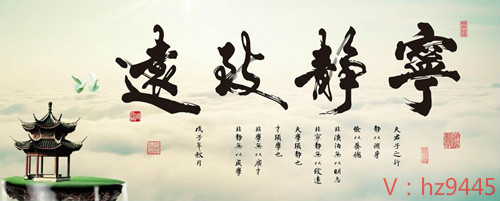 寧靜致遠
夫君子之行
靜以修身
儉以養德
非澹泊無以明志
非寧靜無以致遠
夫學須靜也
才須學也
非學無以廣才
非靜無以成學
戊子年秋月
V：hz9445